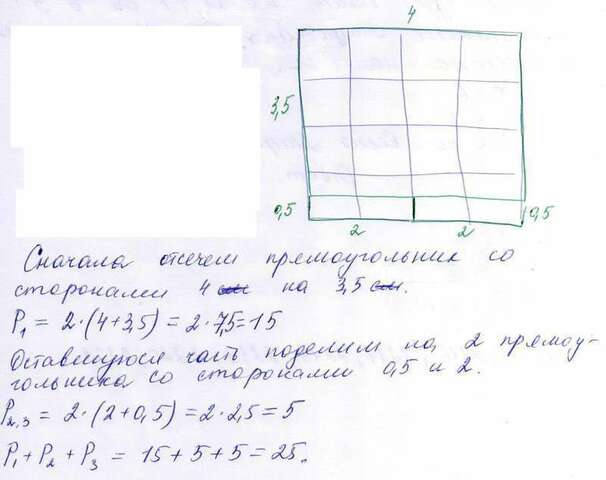 4
3,5
0,5
0,5
2
2
Сначала отсечем прямоугольник со
сторонами 4 см на 3,5 см.
P₁ = 2·(4+3,5) = 2·7,5 = 15
Оставшуюся часть поделим на 2 прямоу-
гольника со сторонами 0,5 и 2.
P₂,₃ = 2·(2+0,5) = 2·2,5 = 5
P₁ + P₂ + P₃ = 15 + 5 + 5 = 25.